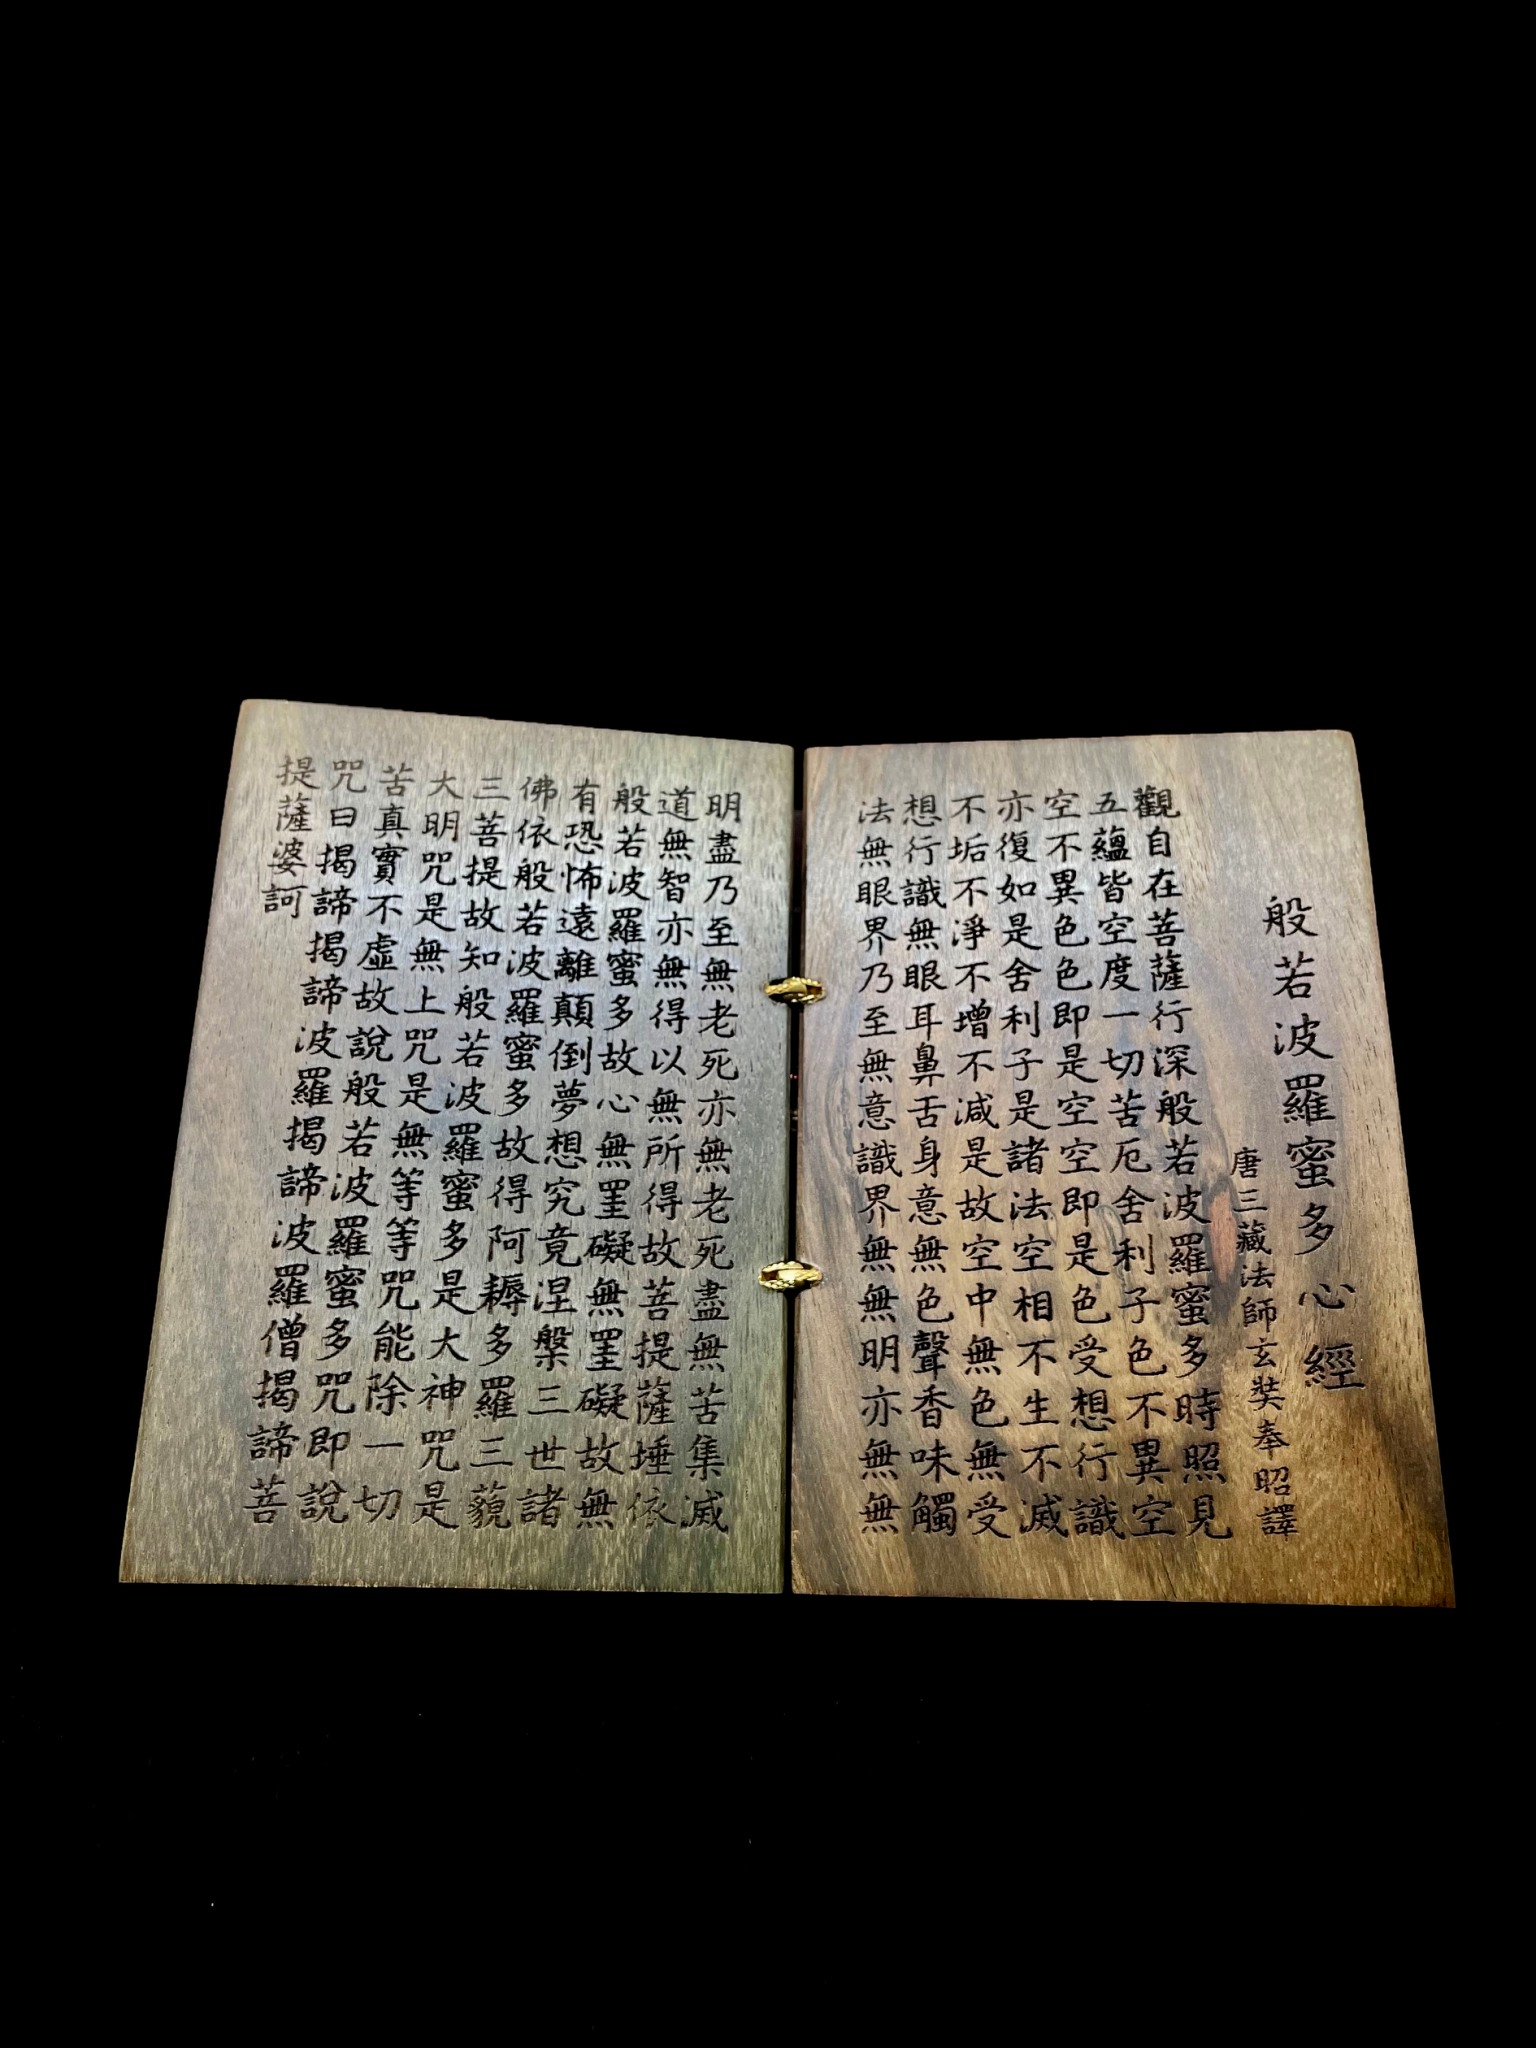 般若波羅蜜多心經
唐三藏法師玄奘奉昭譯
觀自在菩薩行深般若波羅蜜多時照見
五蘊皆空度一切苦厄舍利子色不異空
空不異色色即是空空即是色受想行識
亦復如是舍利子是諸法空相不生不滅
不垢不淨不增不減是故空中無色無受
想行識無眼耳鼻舌身意無色聲香味觸
法無眼界乃至無意識界無無明亦無無
明盡乃至無老死亦無老死盡無苦集滅
道無智亦無得以無所得故菩提薩埵依
般若波羅蜜多故心無罣礙無罣礙故無
有恐怖遠離顛倒夢想究竟涅槃三世諸
佛依般若波羅蜜多故得阿耨多羅三藐
三菩提故知般若波羅蜜多是大神咒是
大明咒是無上咒是無等等咒能除一切
苦真實不虛故說般若波羅蜜多咒即說
咒曰揭諦揭諦波羅揭諦波羅僧揭諦菩
提薩婆訶